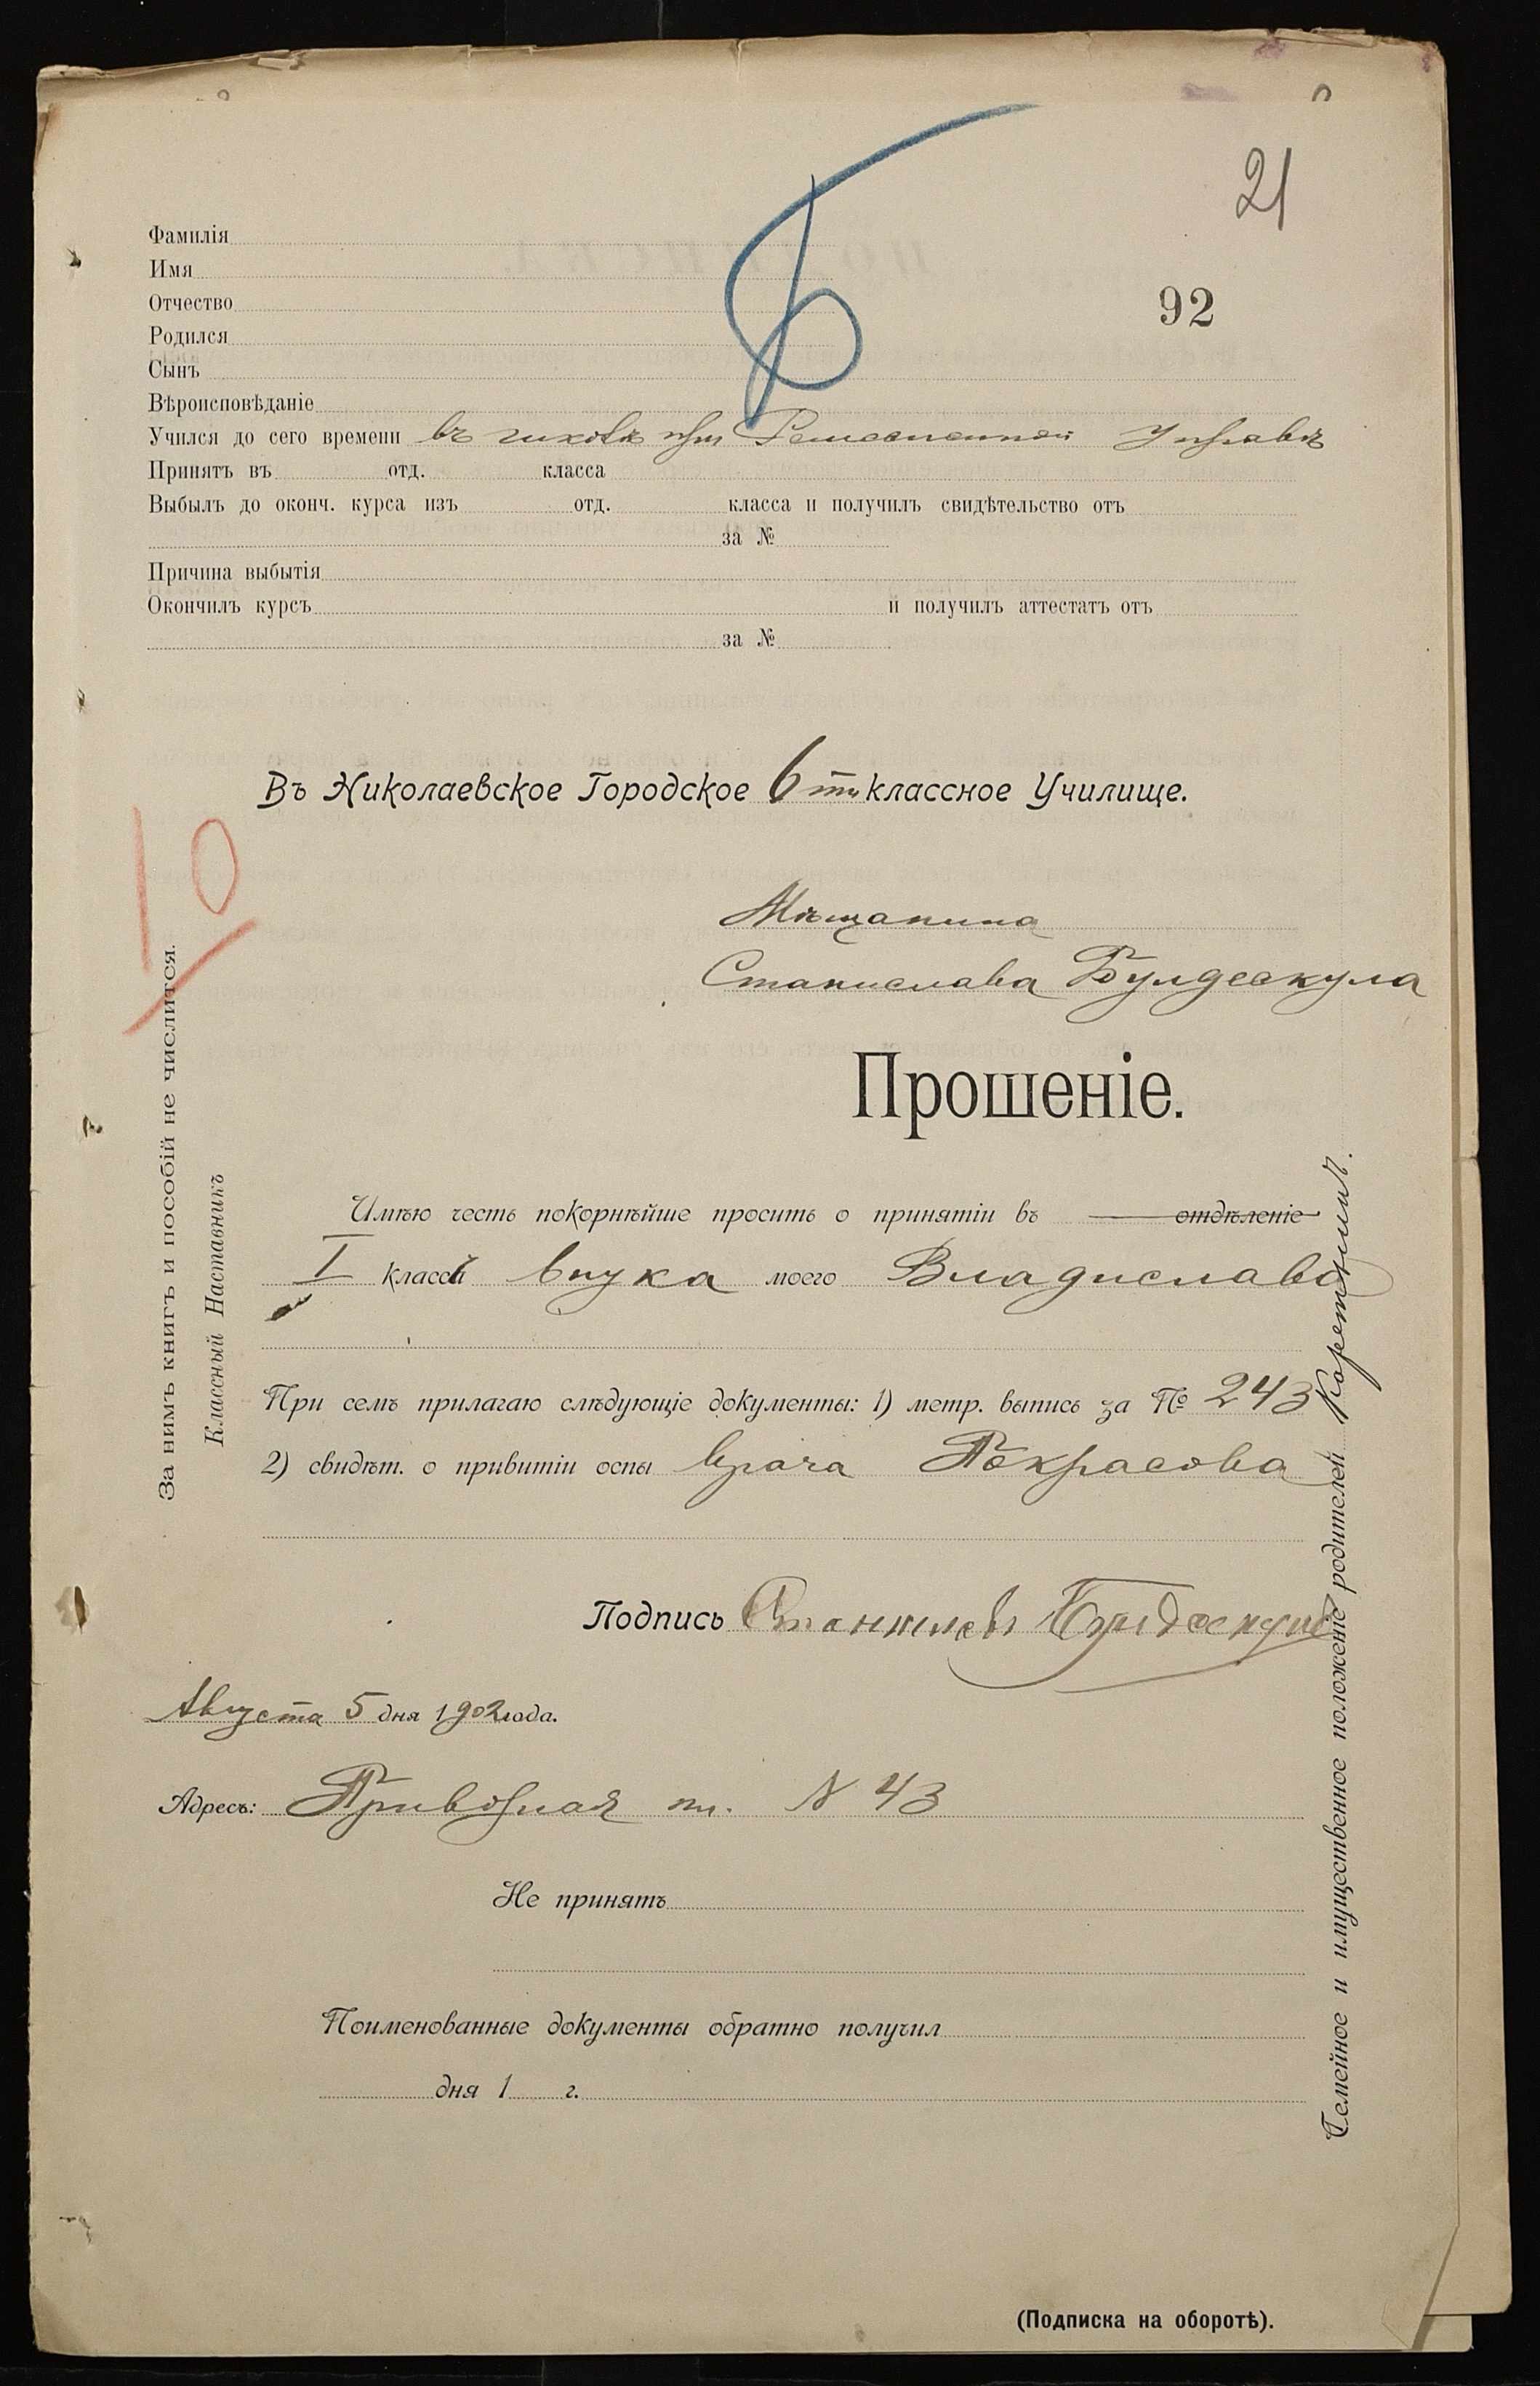 21
92
Фамилія
Имя
Отчество
Родился
Сынъ
Вѣроисповѣданіе
Учился до сего времени въ школѣ при Ремесленной Управѣ
Принятъ въ отд. класса
Выбылъ до оконч. курса изъ отд. класса и получилъ свидѣтельство отъ
за №
Причина выбытія
Окончилъ курсъ и получилъ аттестатъ отъ
за №
Въ Николаевское Городское 6ти классное Училище.
10
Мѣщанина
Станислава Булдескула
Прошеніе.
Имѣю честь покорнѣйше просить о принятіи въ отдѣленіе
I класса внука моего Владислава
При семъ прилагаю слѣдующіе документы: 1) метр. выпись за № 243
2) свидѣт. о привитіи оспы врача
Подпись Станиславъ Булдескулъ
Августа 5 дня 1902 года.
Адресъ: Привозная пл. N 43
Не принятъ
Поименованные документы обратно получил
дня 1 г.
(Подписка на оборотѣ).
За нимъ книгъ и пособій не числится.
Классный Наставникъ
Семейное и имущественное положеніе родителей